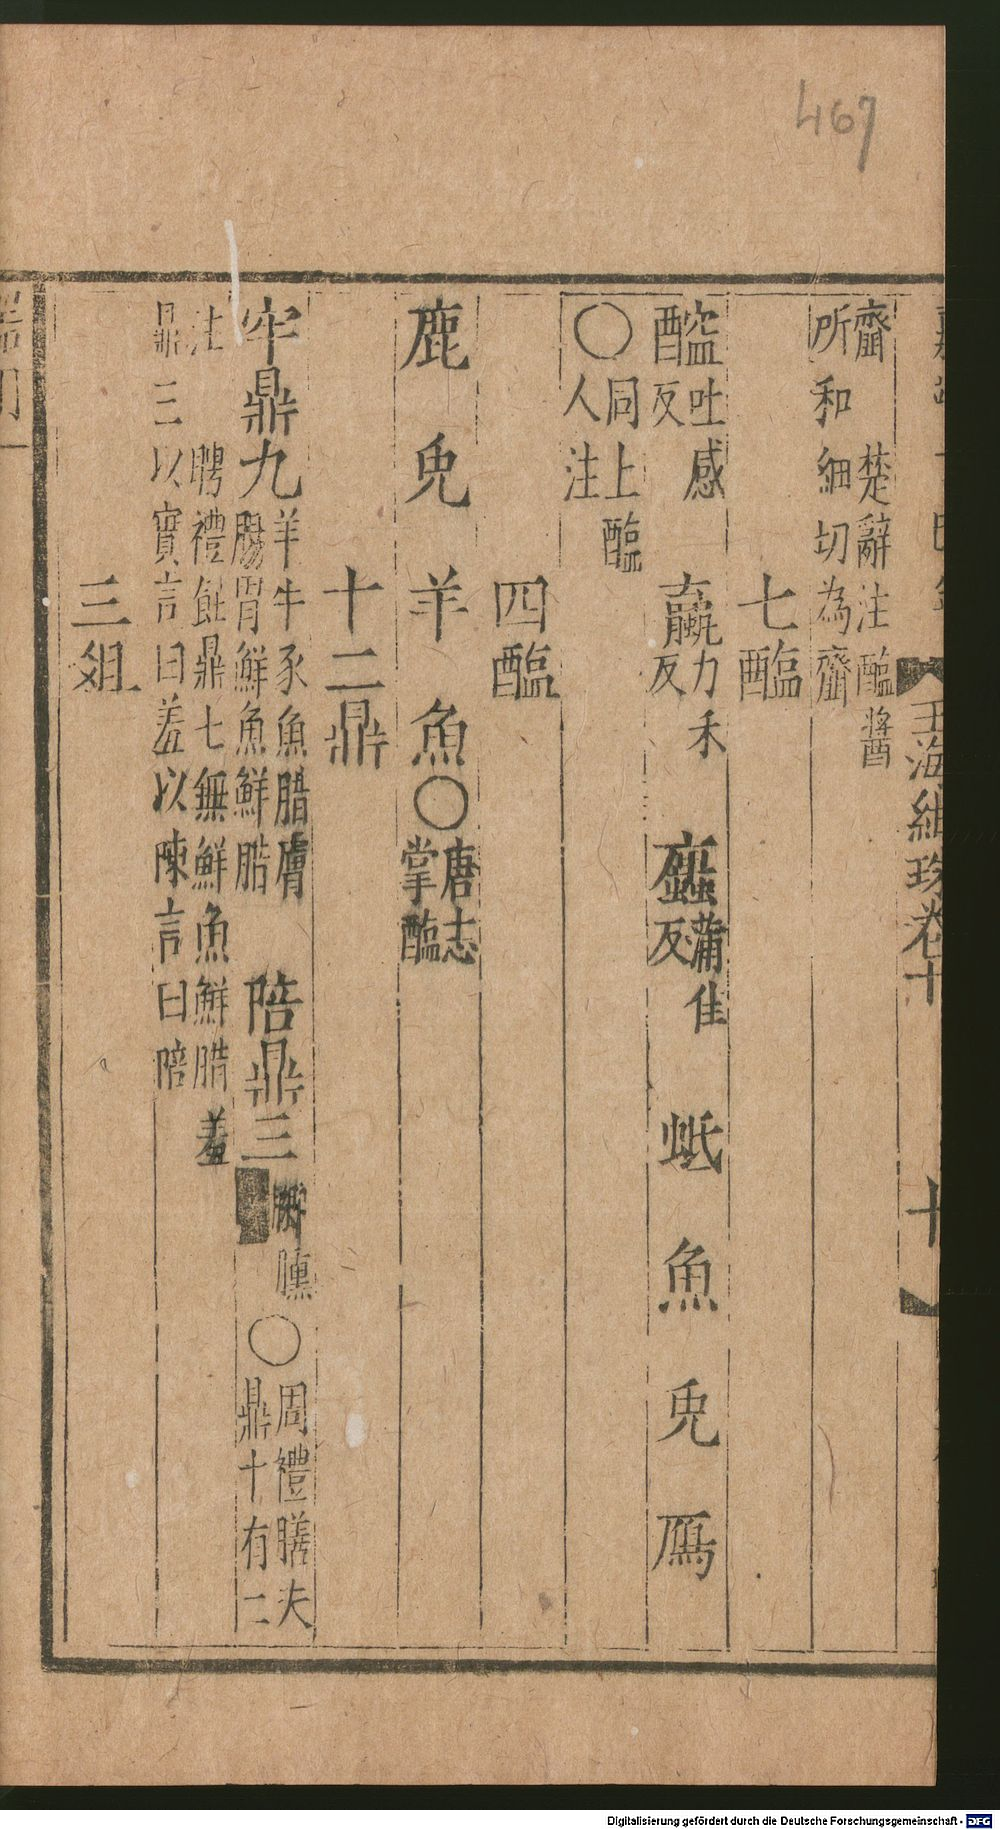 467
玉海紺珠卷十
十
齏 楚辭注醢醬
所和細切為齏
七醢
醓吐感反 蠃力禾反 蠯蒲佳反 蚳 魚 兔 鴈
〇同上醢
人注
四醢
鹿 兔 羊 魚〇唐志掌醢
十二鼎
牢鼎九羊牛豕魚腊膚腸胃鮮魚鮮腊 陪鼎三膷臐〇周禮膳夫鼎十有二
注 聘禮飪鼎七無鮮魚鮮腊羞
鼎三以實言曰羞以陳言曰陪
三俎
Digitalisierung gefördert durch die Deutsche Forschungsgemeinschaft - DFG